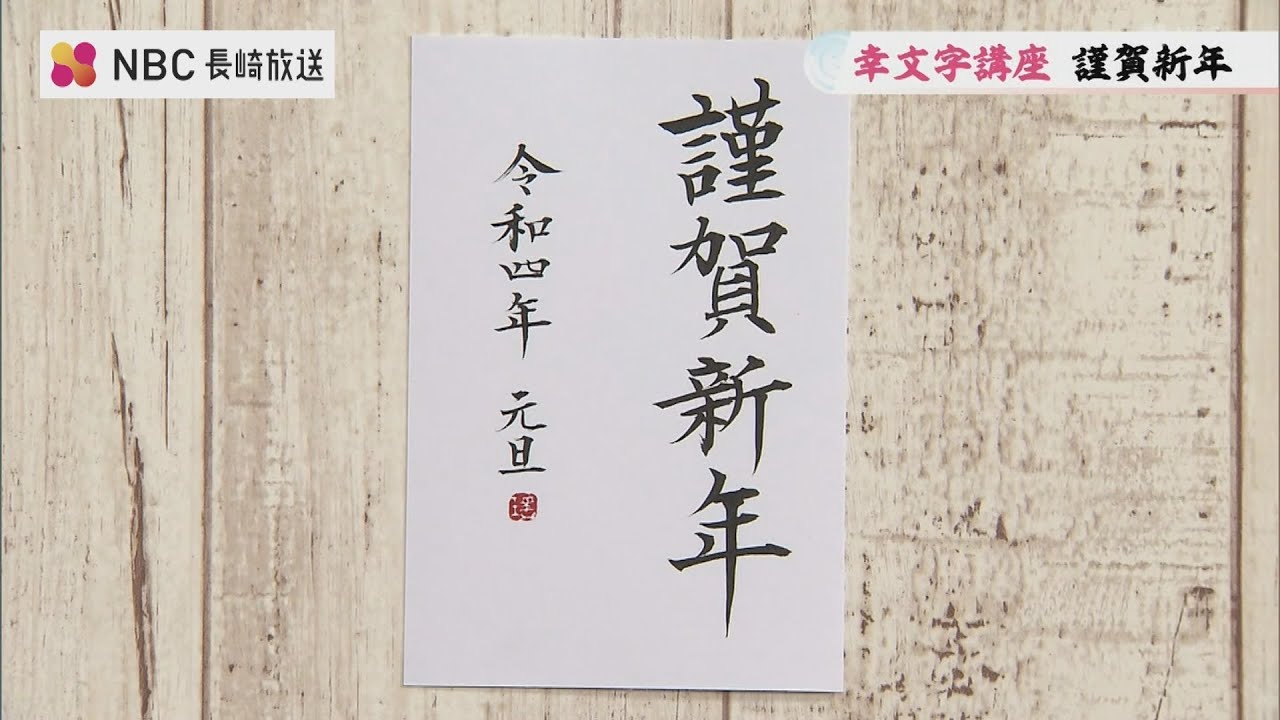 NBC 長崎放送
幸文字講座 謹賀新年
謹賀新年
令和四年 元旦